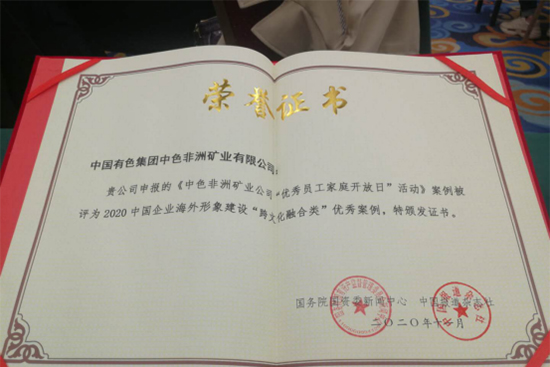 荣誉证书
中国有色集团中色非洲矿业有限公司：
贵公司申报的《中色非洲矿业公司“优秀员工家庭开放日”活动》案例被
评为2020中国企业海外形象建设“跨文化融合类”优秀案例，特颁发证书。
国务院国资委新闻中心 中国报道杂志社
二〇二〇年十月